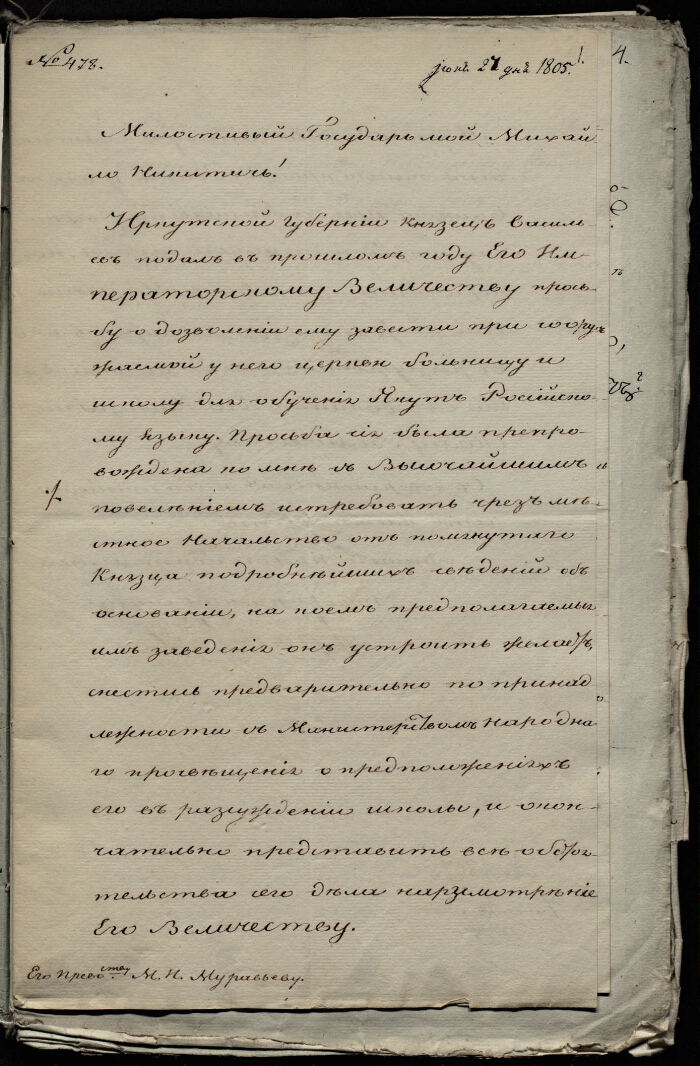 № 478.
июнь 27 днь 1805.
4.
Милостивый Государь мой Михай-
ло Никитичь!
Иркутской губернiи Князецъ Василь-
евъ подалъ въ прошломъ году Его Им-
ператорскому Величеству прось-
бу о дозволенiи ему завести при соору-
жаемой у него церкви больницу и
школу для обученiя Якутъ Россiйско-
му языку. Просьба сiя была препро-
вождена ко мнѣ съ Высочайшимъ
повелѣнiемъ истребовать чрезъ мѣ-
стное Начальство отъ помянутаго
Князца подробнѣйшихъ свѣденiй объ
основанiи, на коемъ предполагаемыя
имъ заведенiя онъ устроить желаетъ,
снестись предварительно по принад-
лежности съ Министерствомъ народна-
го просвѣщенiя о предположенiяхъ
его въ разсужденiи школы, и окон-
чательно представить всѣ обстоя-
тельства сего дѣла на разсмотрѣнiе
Его Величеству.
Его Прево-ству М. Н. Муравьеву.